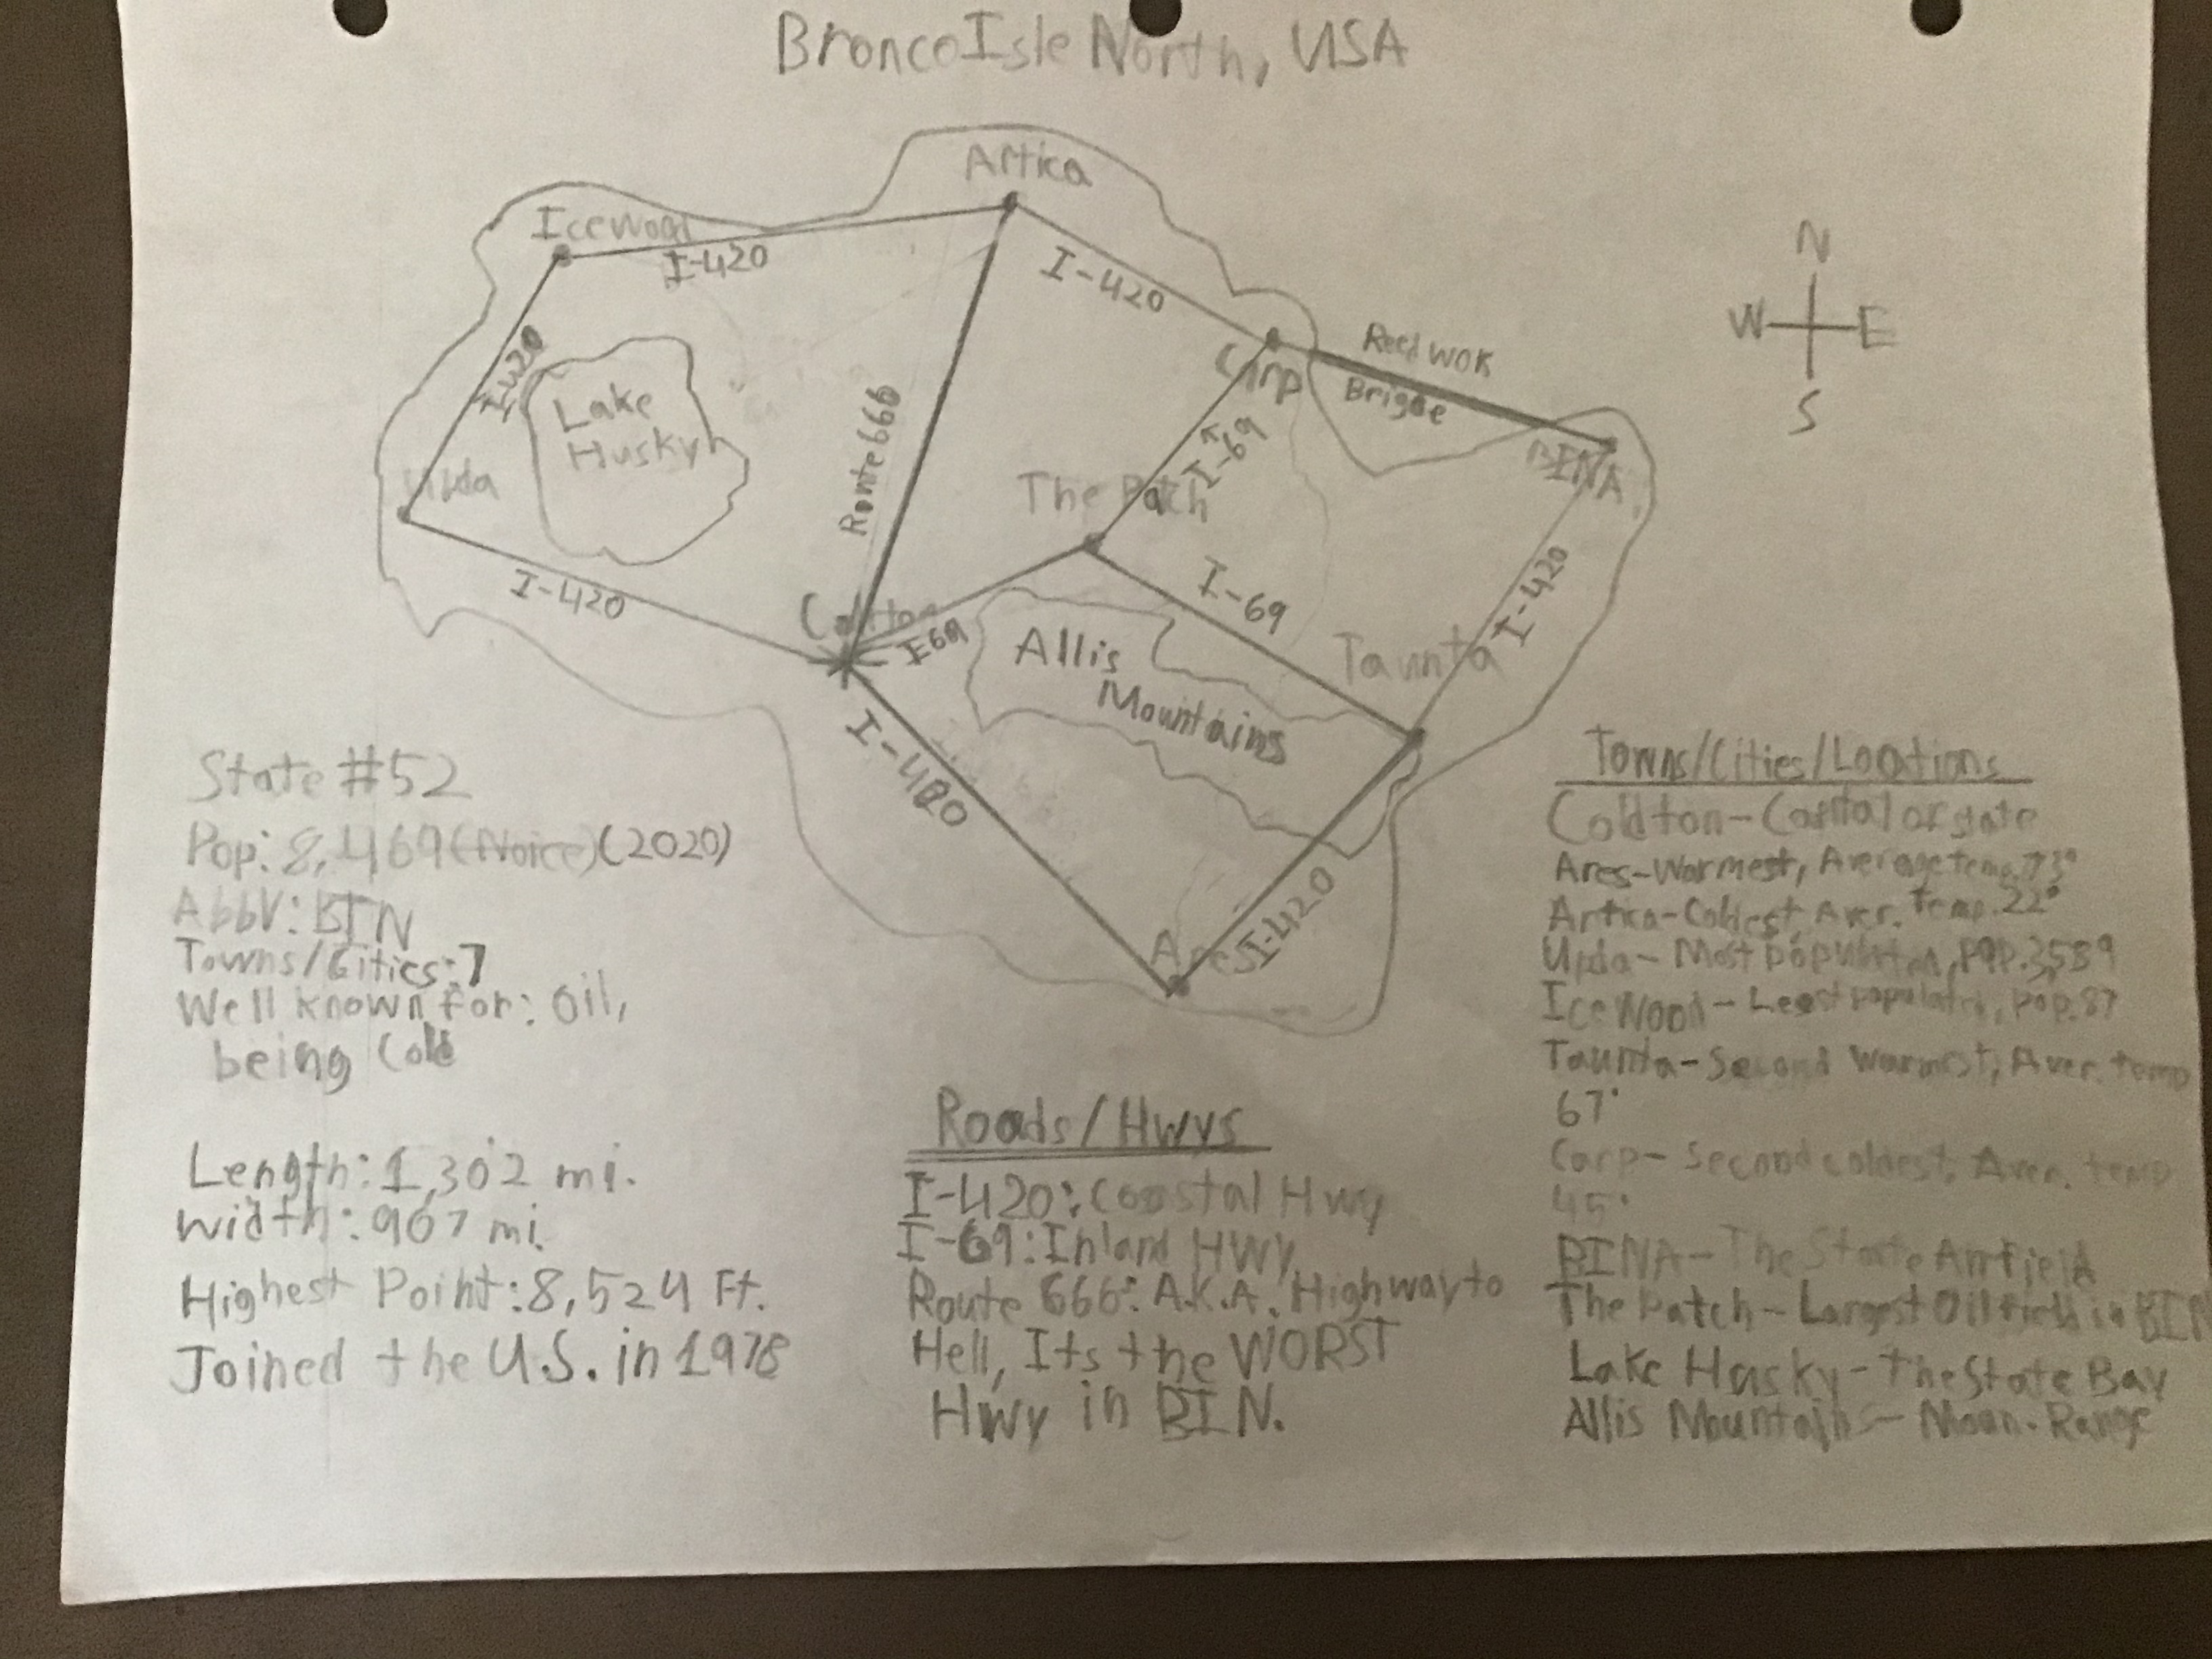 Bronco Isle North, USA
Artica
Icewood
I-420
I-420
N
W E
S
Reed wok
Brigde
Carp
I-420
Lake
Husky
Route 666
I-69
The Patch
BINA
Upda
I-420
Coldton
I-69
I-69
I-420
Taunta
Allis
Mountains
I-420
Ares
I-420
State #52
Pop: 8,469 (Noice) (2020)
Abbv: BIN
Towns/Cities: 7
Well known for: Oil,
being Cold
Length: 1,302 mi.
Width: 967 mi.
Highest Point: 8,524 Ft.
Joined the U.S. in 1978
Roads/Hwys
I-420: Coastal Hwy
I-69: Inland HWY
Route 666: A.K.A. Highway to
Hell, Its the WORST
Hwy in BIN.
Towns/Cities/Locations
Coldton- of state
Ares-Warmest, Average temp. 73°
Artica-Coldest, Aver. temp. 22°
Upda- Most populated, pop. 3,589
Icewood- Least populated, pop. 87
Taunta- Second Warmest, Aver. temp
67°
Carp- Second coldest, Aver. temp
45°
BINA- The State Airfield
The Patch- Largest Oil field in BIN
Lake Husky- The State Bay
Allis Mountains- Moun. Range